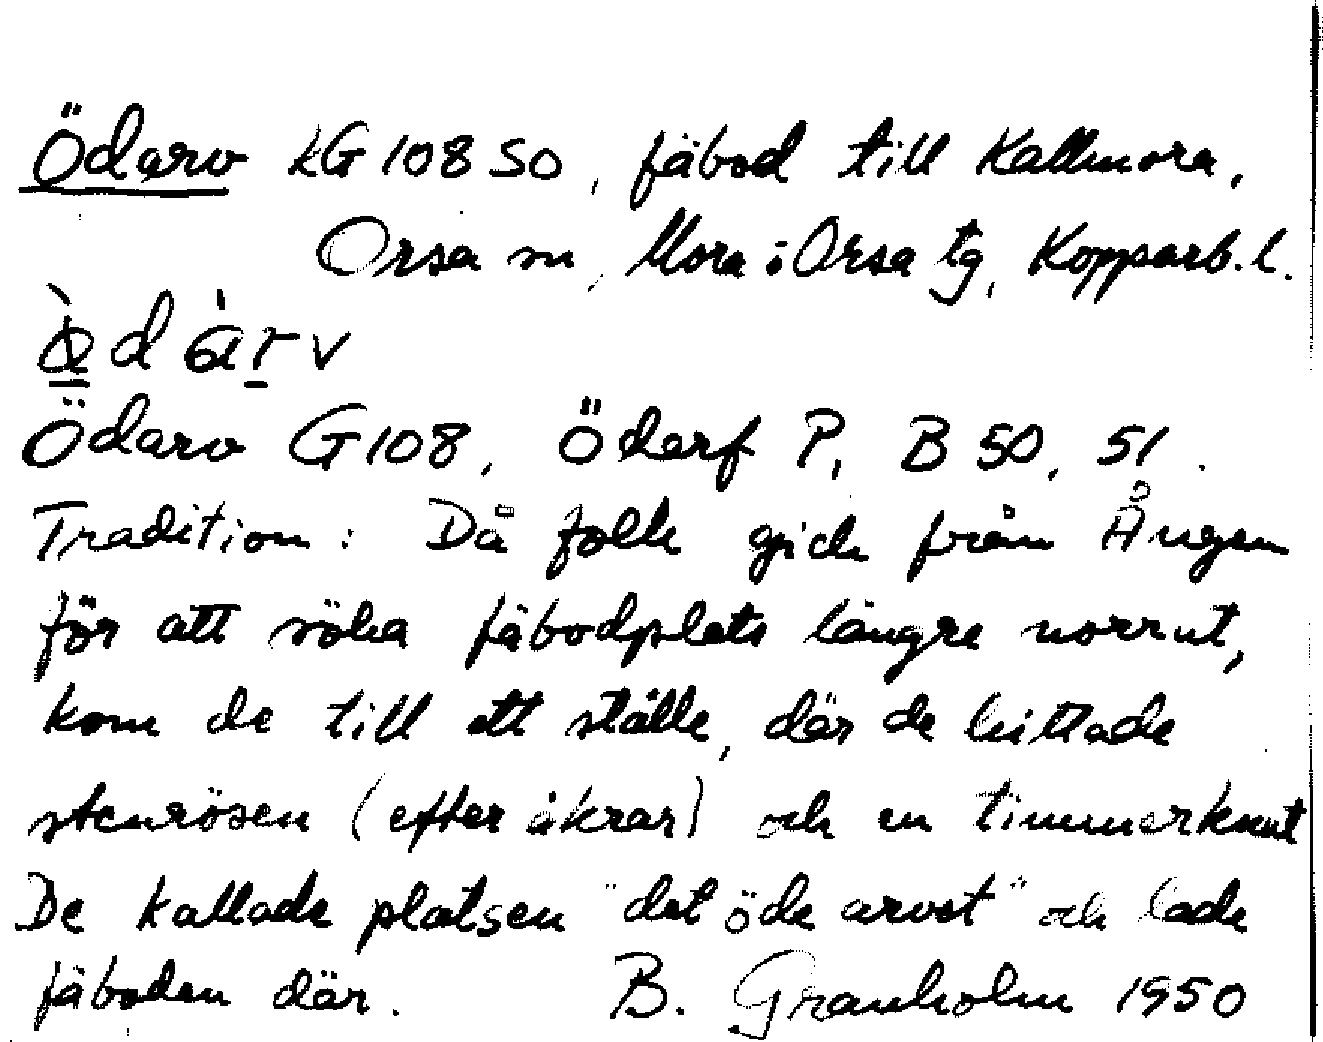 Ödarv LG 108 SO, fäbod till Kallmora,
Orsa sn, Mora i Orsa tg, Kopparb. l.
Ödarv G 108, Ödarf P, B 50, 51.
Tradition: Då folk gick från Ängen
för att söka fäbodplats längre norrut,
kom de till ett ställe, där de hittade
stenrösen (efter åkrar) och en timmerknut
De kallade platsen "det öde arvet" och lade
fäboden där. B. Granholm 1950